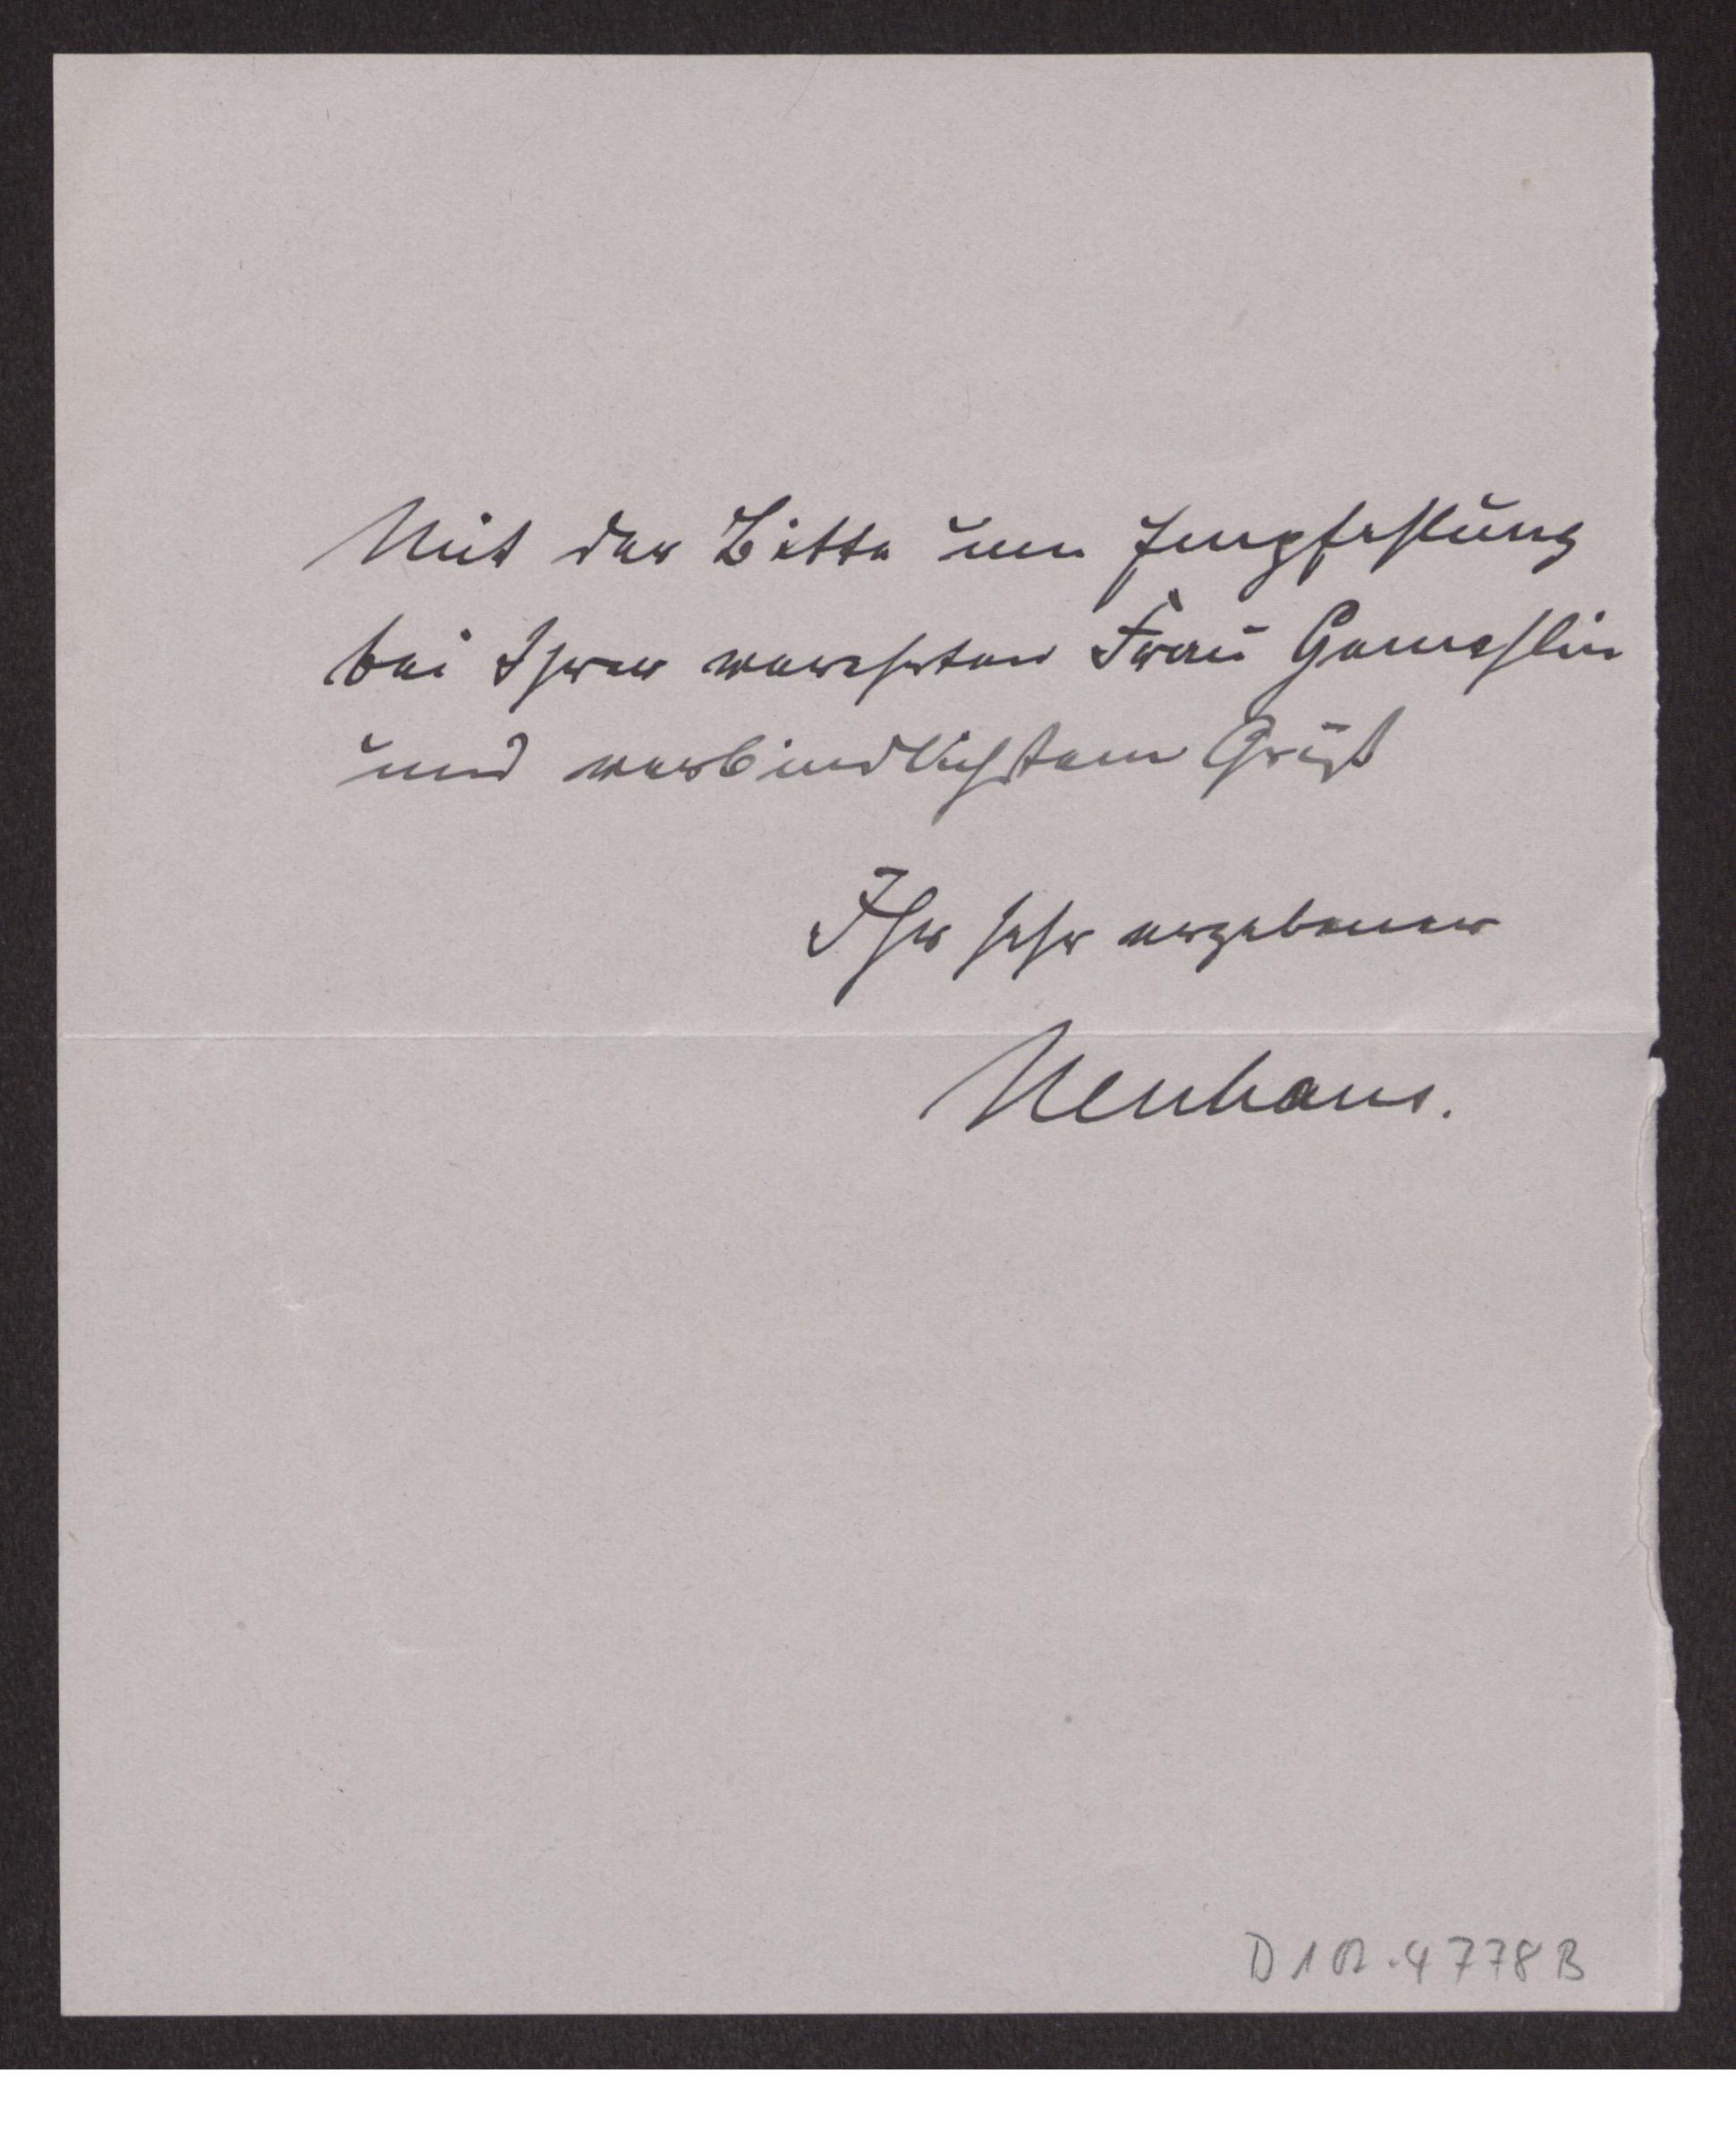 Mit der Bitte um Empfehlung
bei Ihrer verehrten Frau Gemahlin
und verbindlichstem Gruß
Ihr sehr ergebener
Neuhaus.
D 102.4778 B